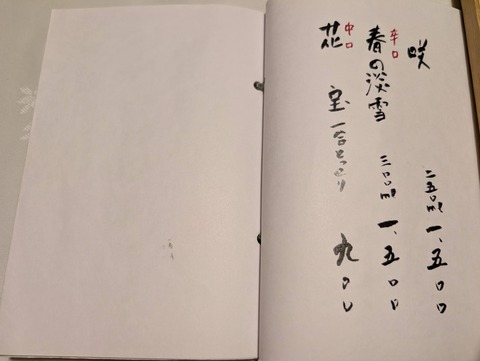 咲 二五〇ml 一、五〇〇
辛口
春の淡雪 三〇〇ml 一、五〇〇
中口
花宝 一合とっくり 九〇〇